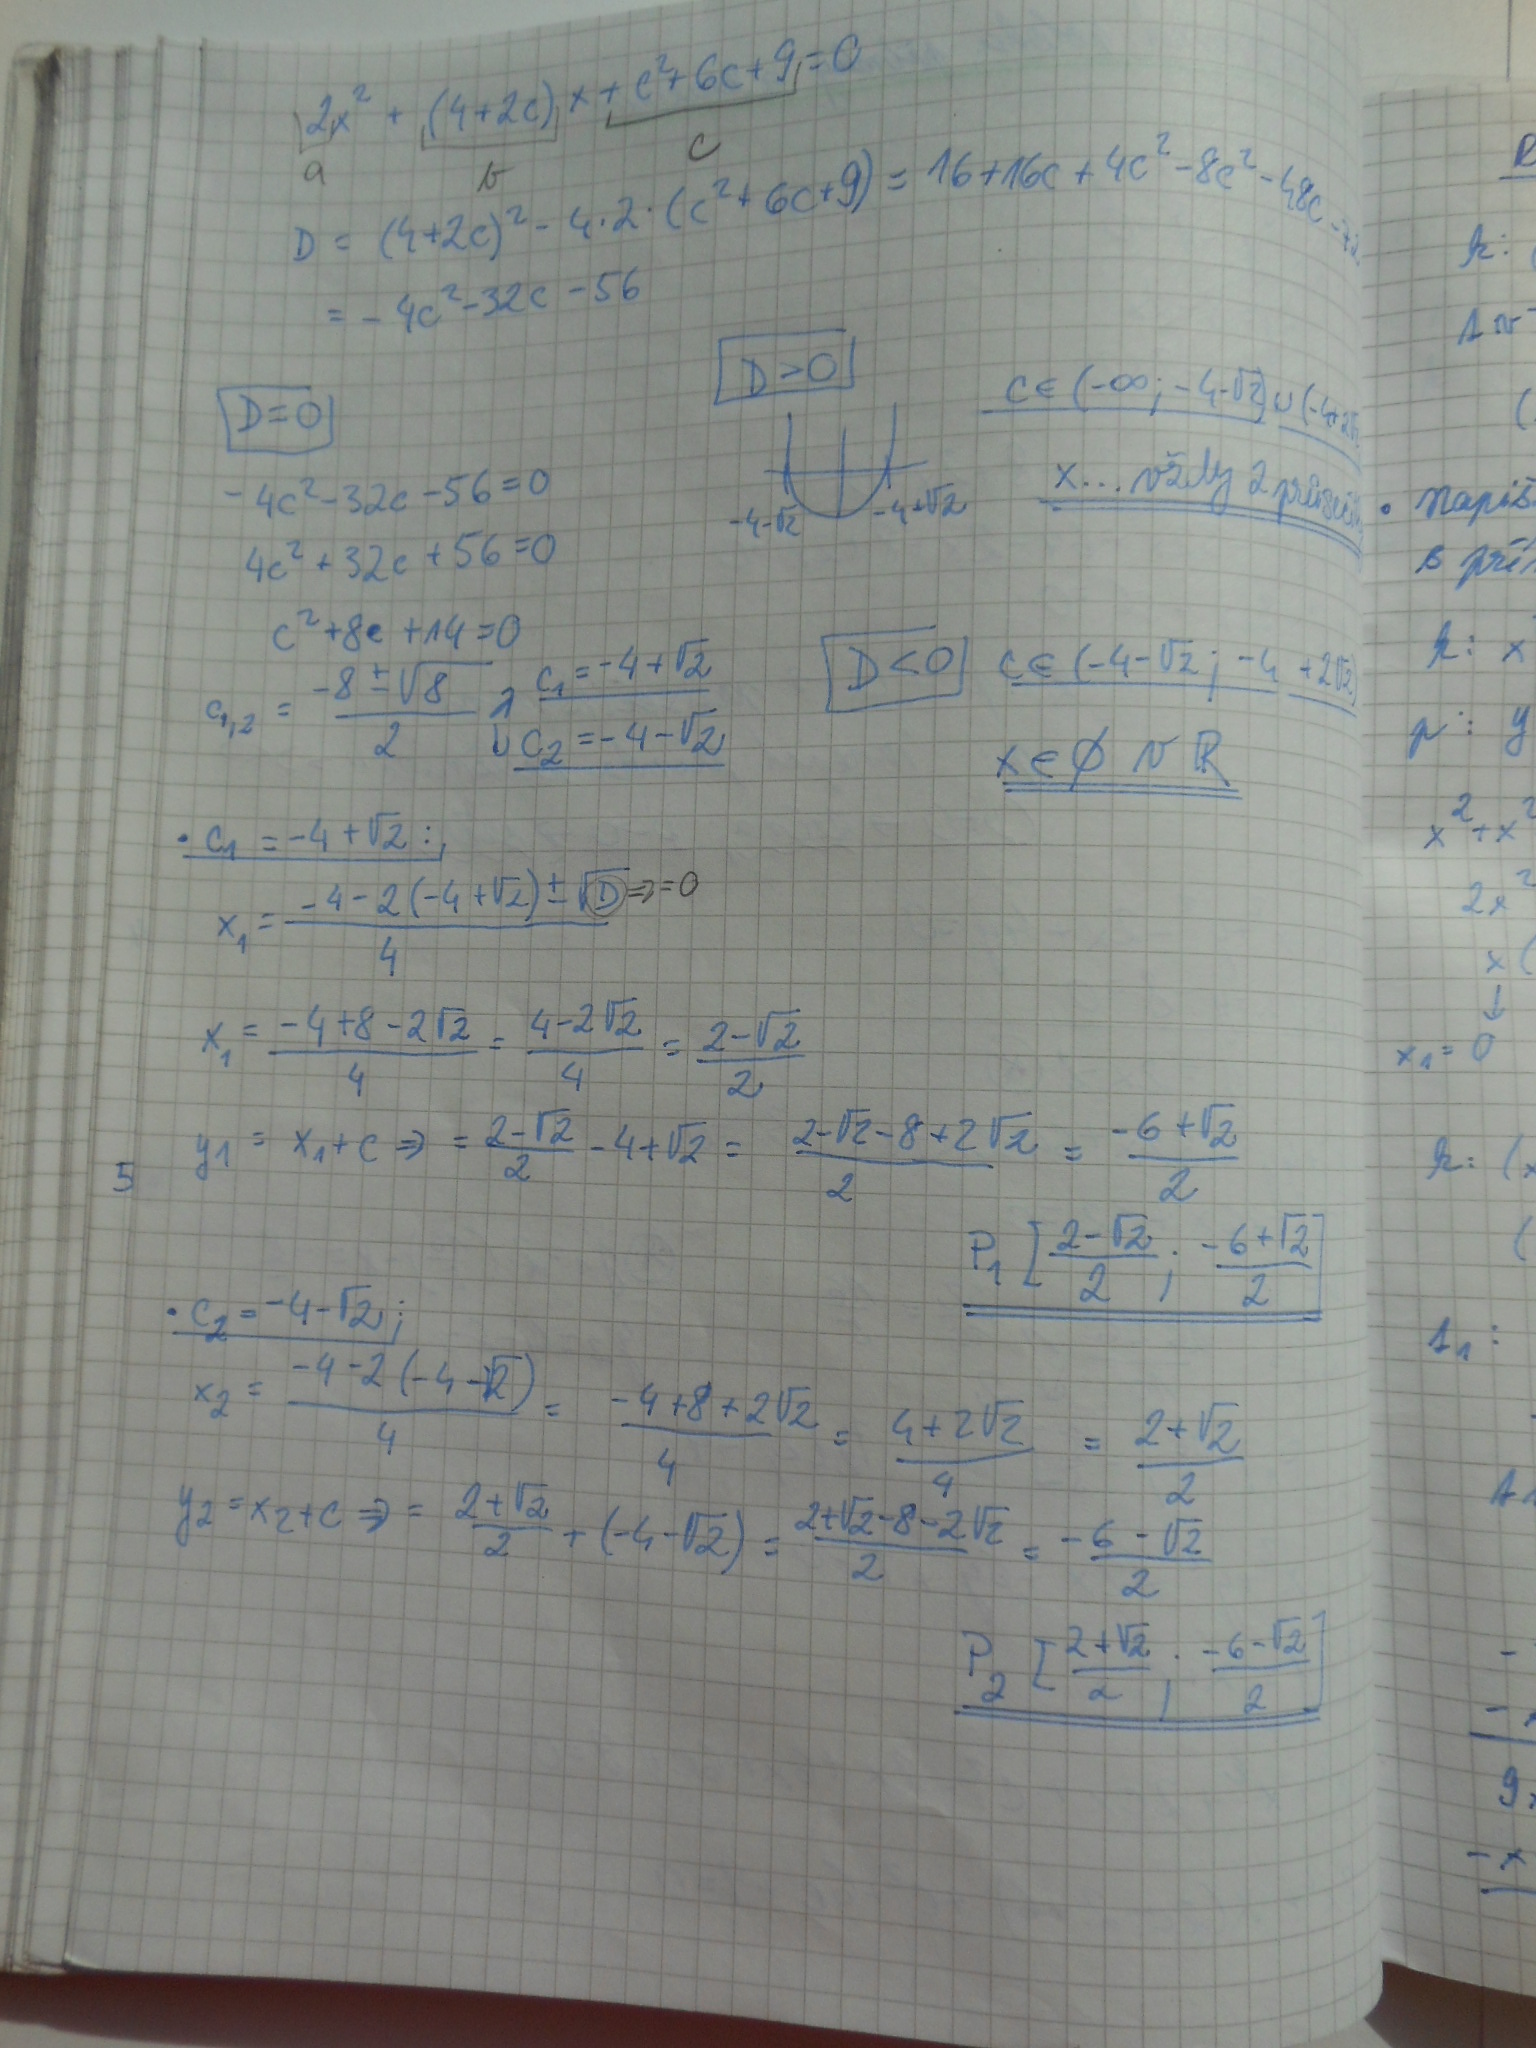 2x² + (4+2c) x + c²+6c+9 = 0
a b c
D = (4+2c)² - 4·2·(c²+6c+9) = 16+16c+4c²-8c²-48c
= -4c²-32c-56
D=0
-4c²-32c-56=0
4c²+32c+56=0
c²+8c+14=0
c1,2 = (-8±√8)/2
c1=-4+√2
c2=-4-√2
D>0
-4-√2 -4+√2
c∈(-∞; -4-√2) ∪ (-4+
x... vždy 2
D<0 c∈(-4-√2; -4+2√2)
x∈∅ v R
• c1 = -4+√2 :
x1 = (-4-2(-4+√2)±√D)/4 ⇒ =0
x1 = (-4+8-2√2)/4 = (4-2√2)/4 = (2-√2)/2
y1 = x1+c ⇒ = (2-√2)/2 -4+√2 = (2-√2-8+2√2)/2 = (-6+√2)/2
5
P1 [(2-√2)/2 ; (-6+√2)/2]
• c2=-4-√2 ;
x2 = (-4-2(-4-√2))/4 = (-4+8+2√2)/4 = (4+2√2)/4 = (2+√2)/2
y2=x2+c ⇒ = (2+√2)/2 + (-4-√2) = (2+√2-8-2√2)/2 = (-6-√2)/2
P2 [(2+√2)/2 ; (-6-√2)/2]
k:
1
• napiš
k: x
p: y
x²+x²
2x²
x(
↓
x1=0
k: (x
(
t1:
9x
-x